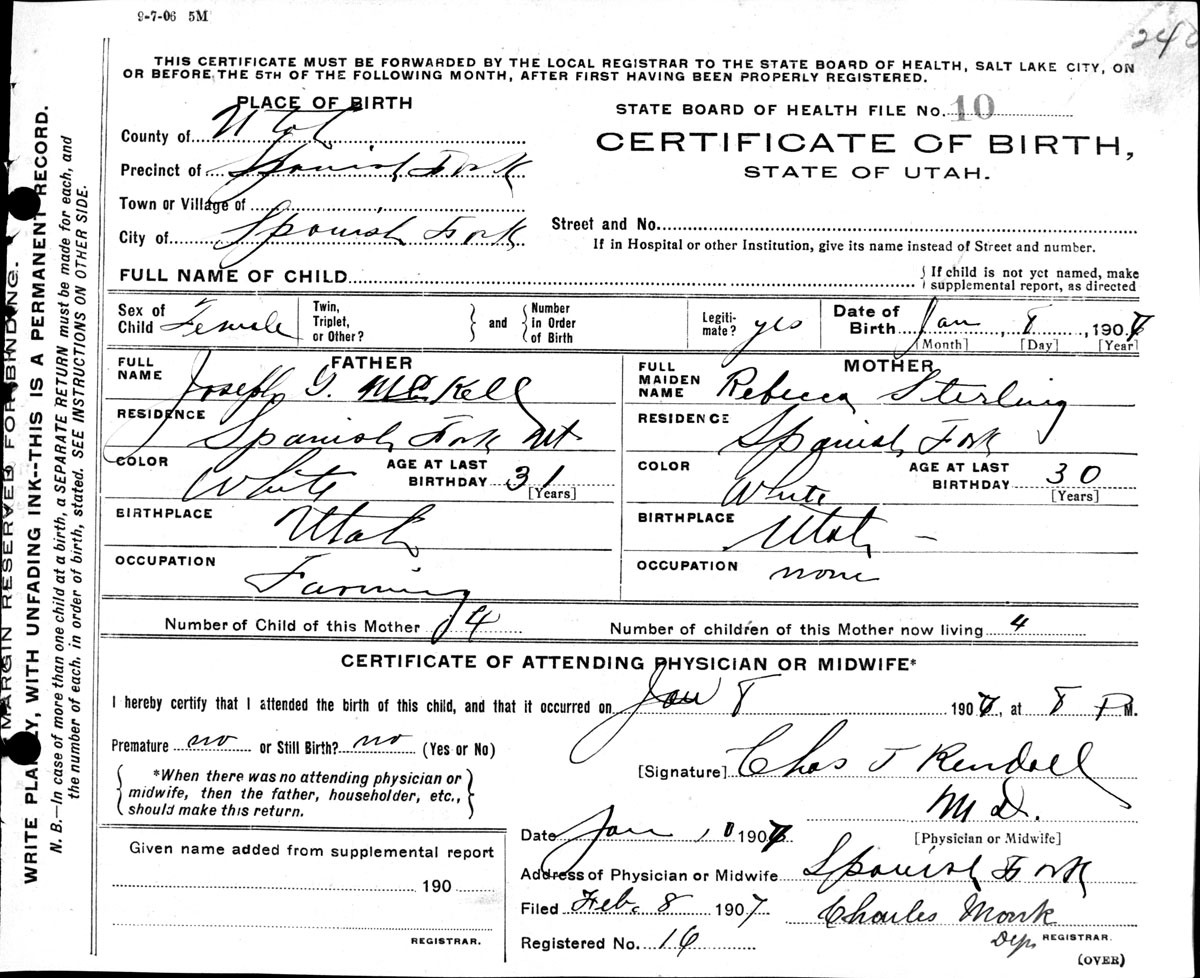 9-7-06 5M
240
THIS CERTIFICATE MUST BE FORWARDED BY THE LOCAL REGISTRAR TO THE STATE BOARD OF HEALTH, SALT LAKE CITY, ON
OR BEFORE THE 5TH OF THE FOLLOWING MONTH, AFTER FIRST HAVING BEEN PROPERLY REGISTERED.
PLACE OF BIRTH
STATE BOARD OF HEALTH FILE No. 10
County of Utah
CERTIFICATE OF BIRTH,
STATE OF UTAH.
Precinct of Spanish Fork
Town or Village of
City of Spanish Fork
Street and No.
If in Hospital or other Institution, give its name instead of Street and number.
FULL NAME OF CHILD
{ If child is not yet named, make
supplemental report, as directed
Sex of Child Female
Twin, Triplet, or Other? } and { Number in Order of Birth
Legiti-mate? yes
Date of Birth Jan, 8, 1907
[Month] [Day] [Year]
FATHER
FULL NAME Joseph G. McKell
RESIDENCE Spanish Fork Ut
COLOR White
AGE AT LAST BIRTHDAY 31 [Years]
BIRTHPLACE Utah
OCCUPATION Farming
MOTHER
FULL MAIDEN NAME Rebecca Sterling
RESIDENCE Spanish Fork
COLOR White
AGE AT LAST BIRTHDAY 30 [Years]
BIRTHPLACE Utah —
OCCUPATION none
Number of Child of this Mother 4
Number of children of this Mother now living 4
CERTIFICATE OF ATTENDING PHYSICIAN OR MIDWIFE*
I hereby certify that I attended the birth of this child, and that it occurred on Jan 8 1907, at 8 P M.
Premature no or Still Birth? no (Yes or No)
{ *When there was no attending physician or
midwife, then the father, householder, etc.,
should make this return. }
[Signature] Chas J Rendall
M D.
[Physician or Midwife]
Date Jan, 1907
Address of Physician or Midwife Spanish Fork
Filed Feb. 8 1907 Charles Monk
Dep. REGISTRAR.
Registered No. 16
(OVER)
Given name added from supplemental report
190
REGISTRAR.
MARGIN RESERVED FOR BINDING.
WRITE PLAINLY, WITH UNFADING INK--THIS IS A PERMANENT RECORD.
N. B.—In case of more than one child at a birth, a SEPARATE RETURN must be made for each, and
the number of each, in order of birth, stated. SEE INSTRUCTIONS ON OTHER SIDE.